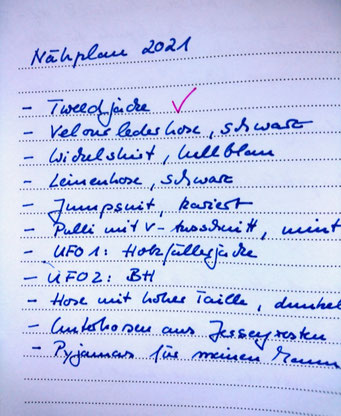 Nähplan 2021
- Tweedjacke ✓
- Velourslederhose, schwarz
- Wickelshirt, hellblau
- Leinenhose, schwarz
- Jumpsuit, kariert
- Pulli mit V-Ausschnitt, mint
- UFO 1: Holzfällerjacke
- UFO 2: BH
- Hose mit hoher Taille, dunkel
- Unterhosen aus Jerseyresten
- Pyjamas für meinen Mann